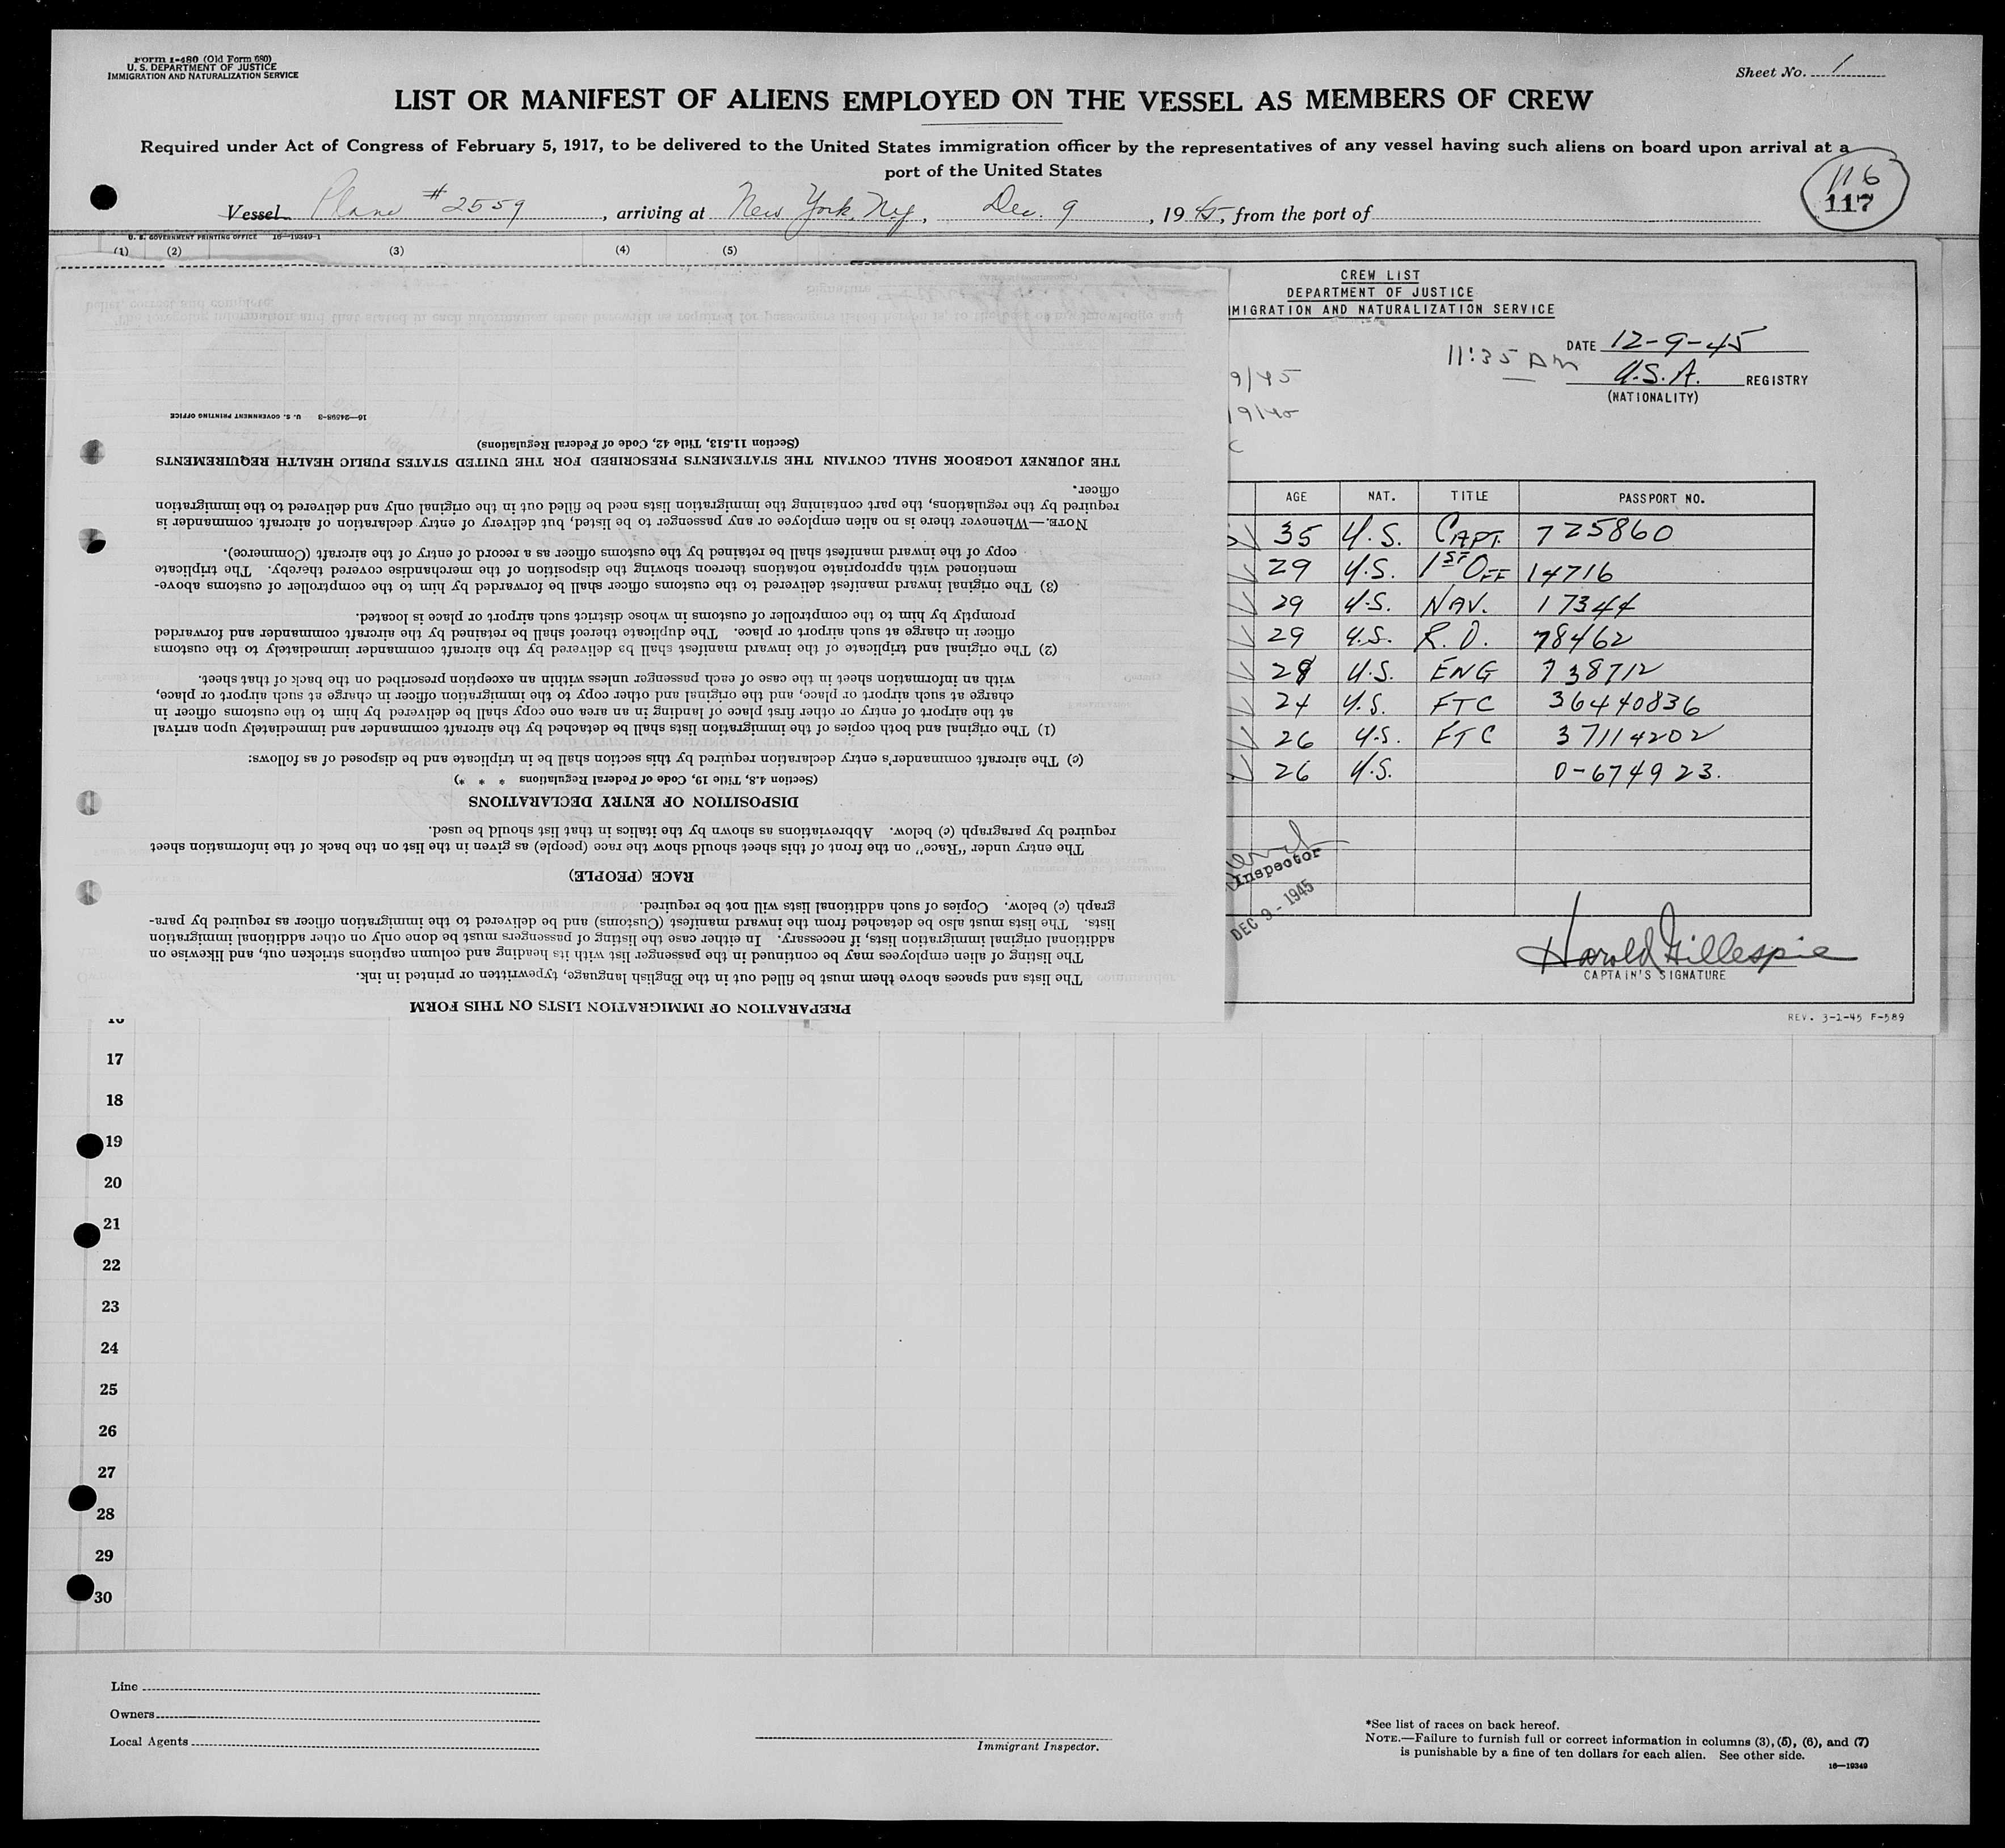 Form I-480 (Old Form 680)
U. S. DEPARTMENT OF JUSTICE
IMMIGRATION AND NATURALIZATION SERVICE
Sheet No. 1
LIST OR MANIFEST OF ALIENS EMPLOYED ON THE VESSEL AS MEMBERS OF CREW
Required under Act of Congress of February 5, 1917, to be delivered to the United States immigration officer by the representatives of any vessel having such aliens on board upon arrival at a
port of the United States
116
117
Vessel Plane #2559, arriving at New York, N.Y., Dec. 9, 1945, from the port of
U. S. GOVERNMENT PRINTING OFFICE 16—19349-1
(1) (2) (3) (4) (5)
CREW LIST
DEPARTMENT OF JUSTICE
MIGRATION AND NATURALIZATION SERVICE
DATE 12-9-45
11:35 AM
U.S.A. REGISTRY
(NATIONALITY)
9/45
AGE NAT. TITLE PASSPORT NO.
35 U.S. CAPT. 725860
29 U.S. 1ST OFF 14716
29 U.S. NAV. 17344
29 U.S. R.O. 78462
28 U.S. ENG 738712
24 U.S. FTC 36440836
26 U.S. FTC 37114202
26 U.S. 0-674923.
Inspector
DEC 9 - 1945
Harold Gillespie
CAPTAIN'S SIGNATURE
REV. 3-1-45 F-589
PREPARATION OF IMMIGRATION LISTS ON THIS FORM
The lists and spaces above them must be filled out in the English language, typewritten or printed in ink.
The listing of alien employees may be continued in the passenger list with its heading and column captions stricken out, and likewise on
additional original immigration lists, if necessary. In either case the listing of passengers must be done only on other additional immigration
lists. The lists must also be detached from the inward manifest (Customs) and be delivered to the immigration officer as required by para-
graph (c) below. Copies of such additional lists will not be required.
RACE (PEOPLE)
The entry under "Race" on the front of this sheet should show the race (people) as given in the list on the back of the information sheet
required by paragraph (c) below. Abbreviations as shown by the italics in that list should be used.
DISPOSITION OF ENTRY DECLARATIONS
(Section 4.8, Title 19, Code of Federal Regulations * * *)
(c) The aircraft commander's entry declaration required by this section shall be in triplicate and be disposed of as follows:
(1) The original and both copies of the immigration lists shall be detached by the aircraft commander and immediately upon arrival
at the airport of entry or other first place of landing in an area one copy shall be delivered by him to the customs officer in
charge at such airport or place, and the original and other copy to the immigration officer in charge at such airport or place,
with an information sheet in the case of each passenger unless within an exception prescribed on the back of that sheet.
(2) The original and triplicate of the inward manifest shall be delivered by the aircraft commander immediately to the customs
officer in charge at such airport or place. The duplicate thereof shall be retained by the aircraft commander and forwarded
promptly by him to the comptroller of customs in whose district such airport or place is located.
(3) The original inward manifest delivered to the customs officer shall be forwarded by him to the comptroller of customs above-
mentioned with appropriate notations thereon showing the disposition of the merchandise covered thereby. The triplicate
copy of the inward manifest shall be retained by the customs officer as a record of entry of the aircraft (Commerce).
NOTE.—Whenever there is no alien employee or any passenger to be listed, but delivery of entry declaration of aircraft commander is
required by the regulations, the part containing the immigration lists need be filled out in the original only and delivered to the immigration
officer.
THE JOURNEY LOGBOOK SHALL CONTAIN THE STATEMENTS PRESCRIBED FOR THE UNITED STATES PUBLIC HEALTH REQUIREMENTS
(Section 11.513, Title 42, Code of Federal Regulations)
16—24598-3 U. S. GOVERNMENT PRINTING OFFICE
17
18
19
20
21
22
23
24
25
26
27
28
29
30
Line
Owners
Local Agents
Immigrant Inspector.
*See list of races on back hereof.
NOTE.—Failure to furnish full or correct information in columns (3), (5), (6), and (7)
is punishable by a fine of ten dollars for each alien. See other side.
16—19349